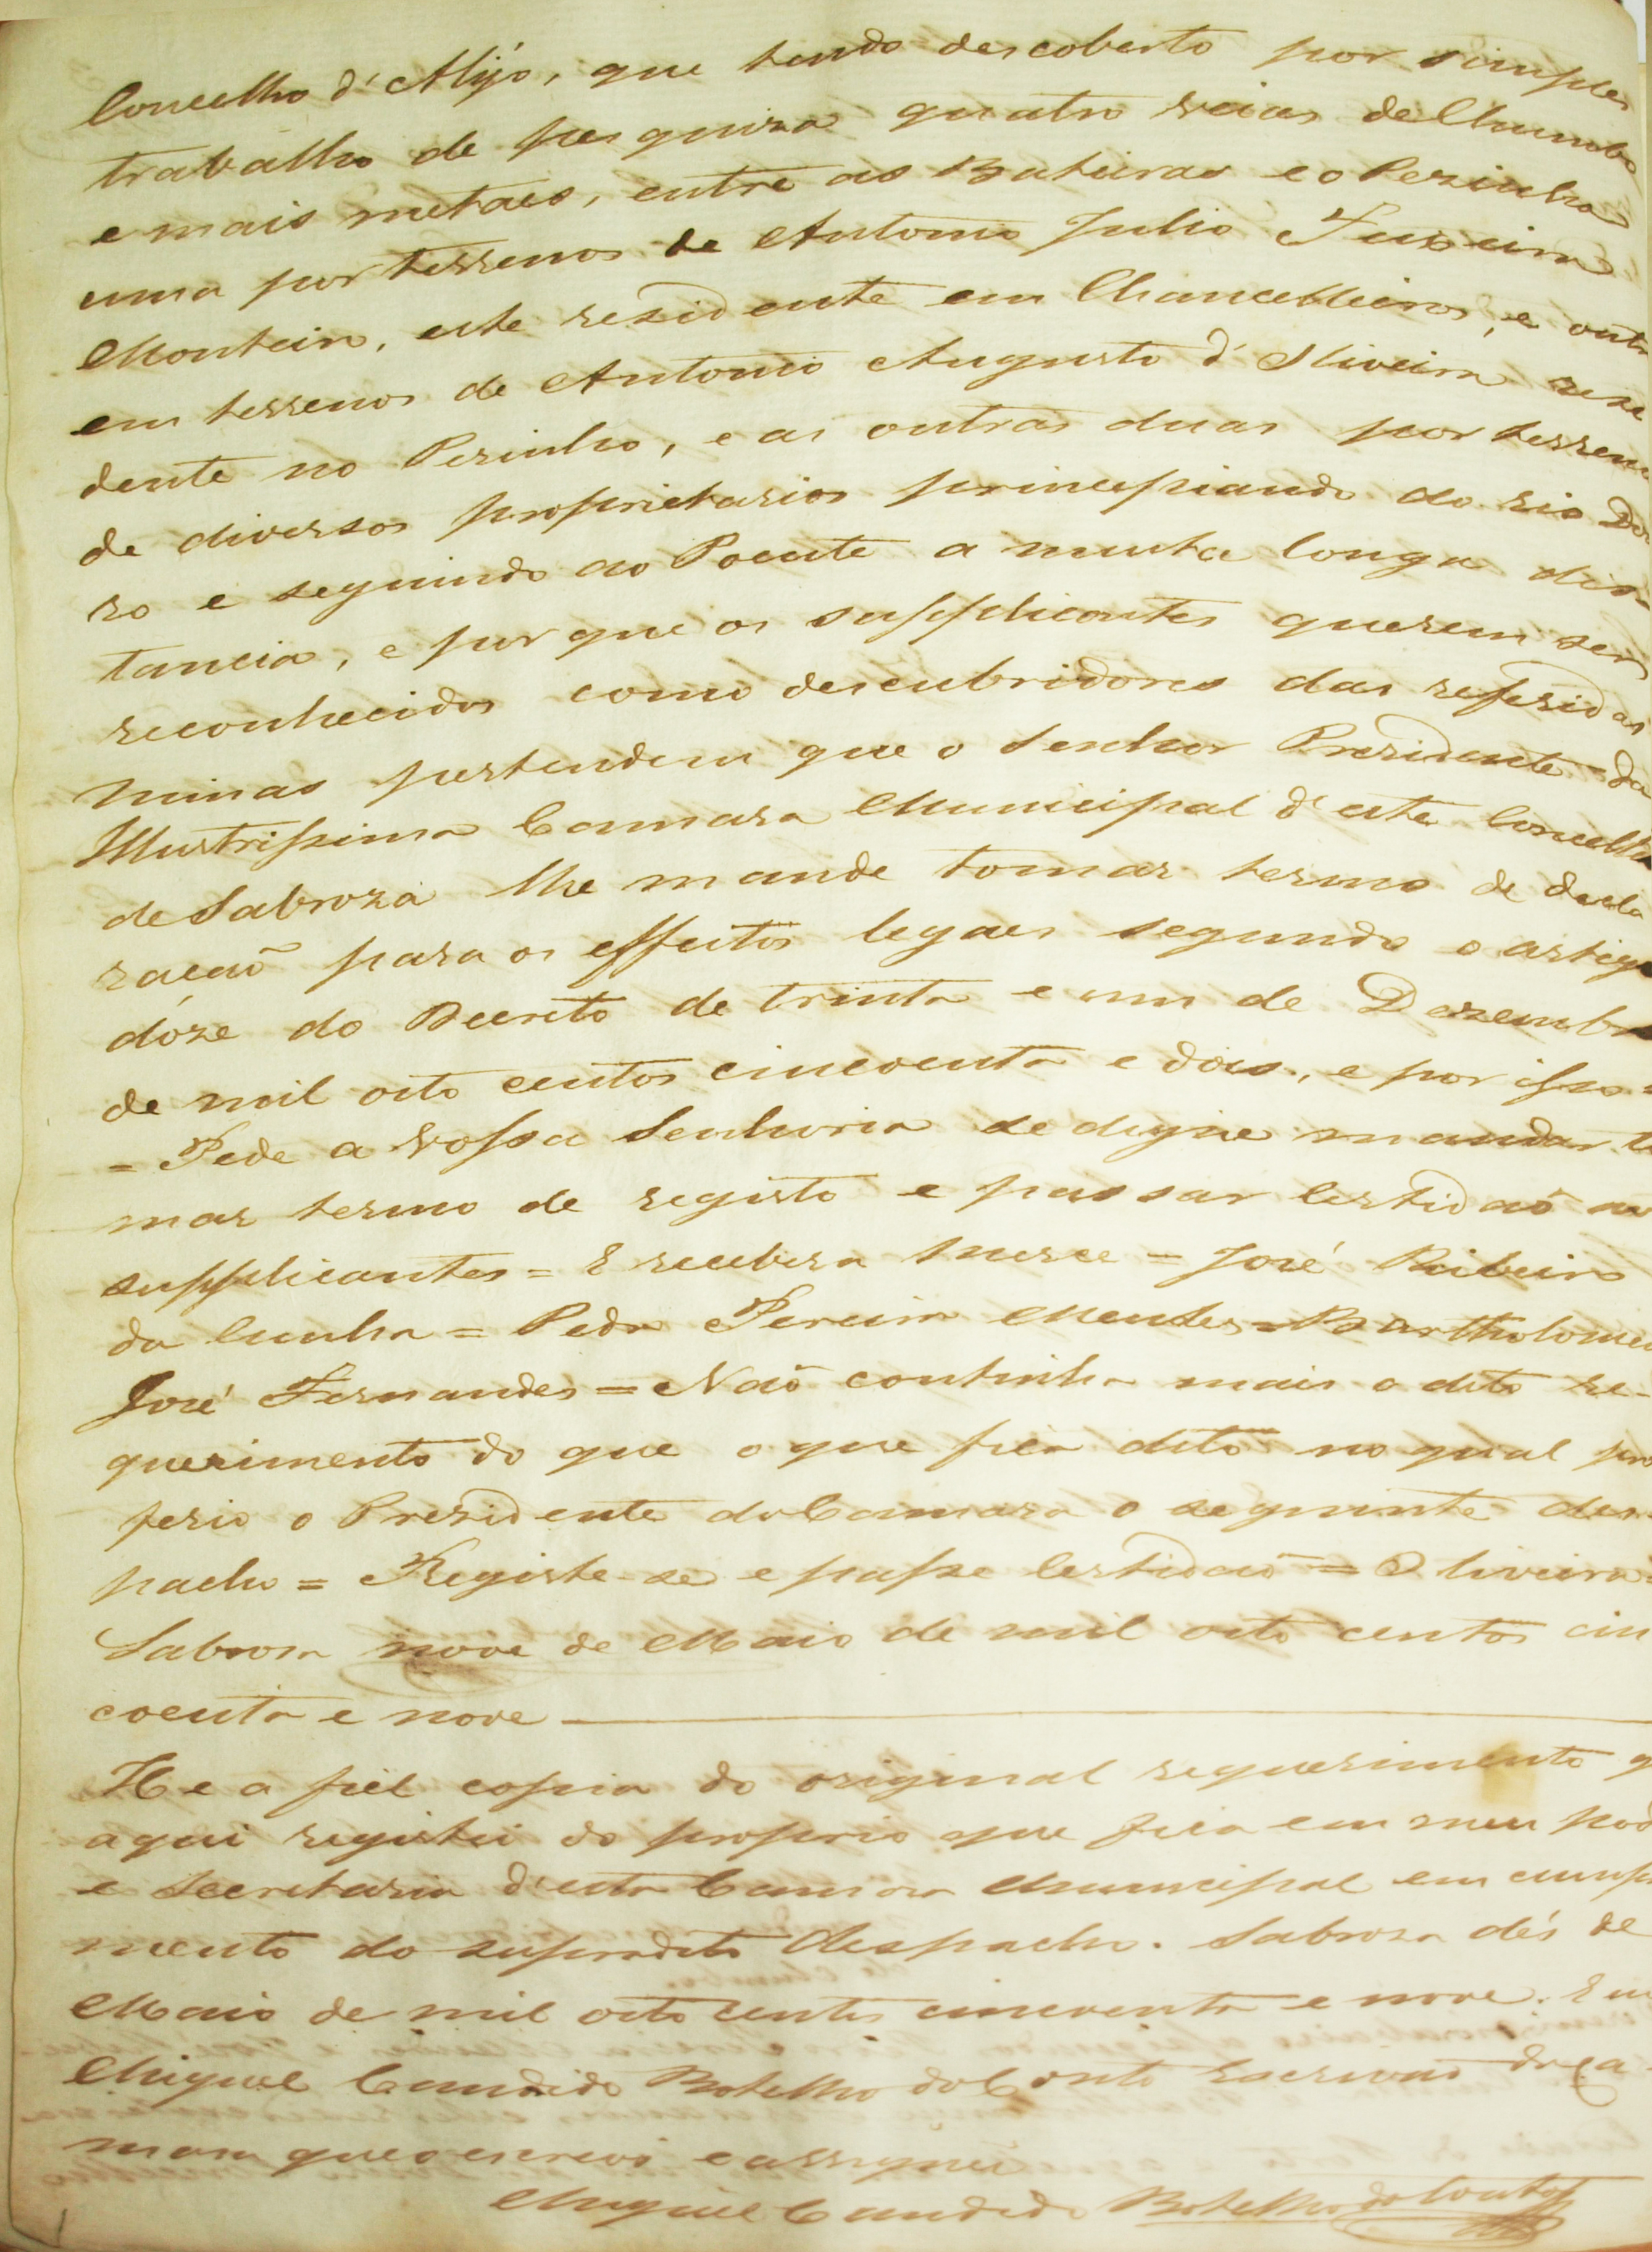 Concelho d'Alijó, que tendo descoberto por simples
trabalho de pesquiza quatro veias de Chumbo
e mais metaes, entre as Bateiras e o Pezinho
uma por terrenos de Antonio Julio Teixeira
Monteiro, este rezidente em Chancelleiros, e outra
em terrenos de Antonio Augusto d'Oliveira rezi
dente no Pezinho, e as outras duas por terrenos
de diversos proprietarios principiando do rio Dou
ro e seguindo ao Poente a muita longa dis-
tancia, e por que os supplicantes querem ser
reconhecidos como descubridores das referidas
minas pertendem que o Senhor Prezidente da
Illustrissima Camara Municipal d'este Concelho
de Sabroza lhe mande tomar termo de decla
ração para os effeitos legaes segundo o artigo
dóze do Decreto de trinta e um de Dezembro
de mil oito centos cincoenta e dois, e por isso =
= Pede a Vossa Senhoria se digne mandar to
mar termo de registo e passar Certidaõ aos
supplicantes = E recebera merce = José Ribeiro
da Cunha = Pedro Pereira Mendes = Bartholomeu
José Fernandes = Naõ continha mais o dito re-
querimento do que o que fica dito no qual pro
ferio o Prezidente da Camara o seguinte des-
pacho = Registe-se e passe Certidaõ = Oliveira =
Sabroza nove de Maio de mil oito centos cin
coenta e nove
He a fiel copia do original requerimento q
aqui registei do proprio que fica em meu pod
e Secretaria d'esta Camara Municipal em cump
mento do supradito despacho. Sabroza dés de
Maio de mil oito centos cincoenta e nove. Eu
Miguel Candido Botelho do Couto Escrivaõ da Ca
mara que o escrevi e assignei
Miguel Candido Botelho do Couto